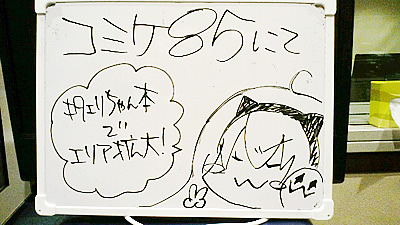 コミケ85にて
キタエリちゃん本
で
エリア拡大!